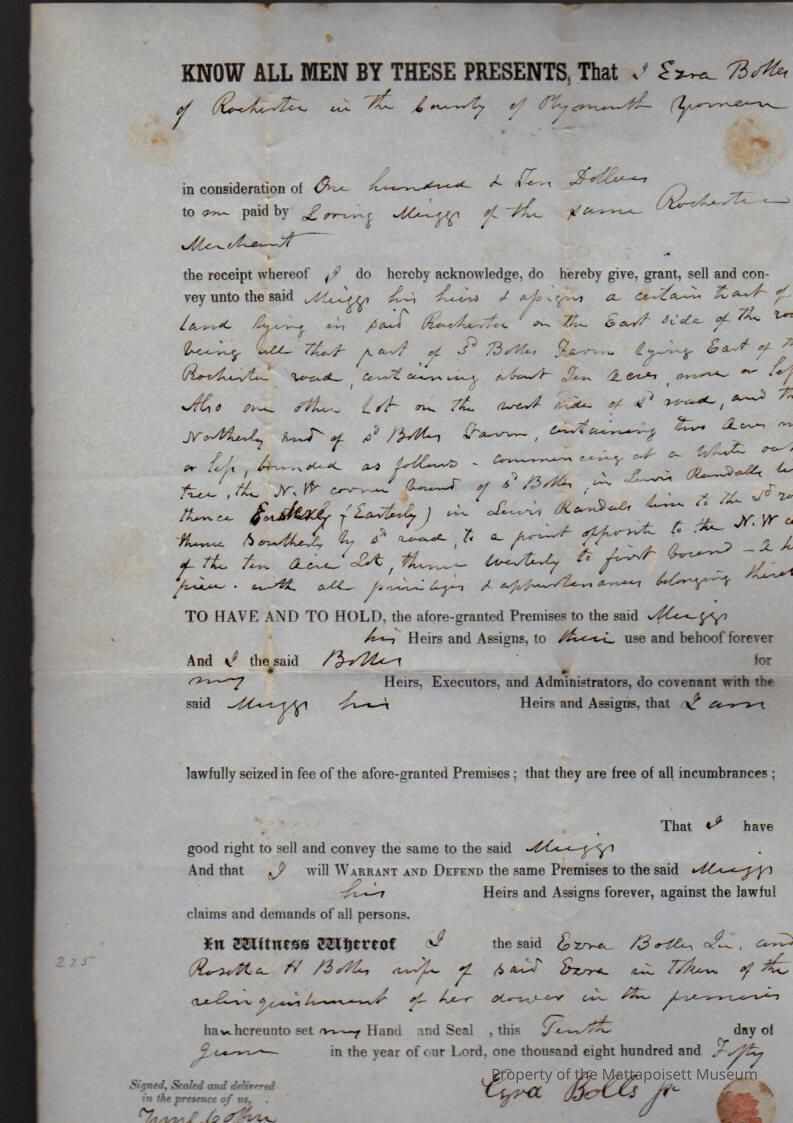 KNOW ALL MEN BY THESE PRESENTS, That I Ezra Bolles
of Rochester in the County of Plymouth Yeoman
in consideration of One hundred & Ten Dollars
to me paid by Loring Meiggs of the same Rochester
Merchant
the receipt whereof I do hereby acknowledge, do hereby give, grant, sell and con-
vey unto the said Meiggs his heirs & assigns a certain tract of
land lying in said Rochester on the East side of the
being all that part of Sd Bolles Farm lying East of
Rochester road, containing about Ten Acres, more or
Also one other lot on the west side of Sd road, and
Northerly end of sd Bolles Farm, containing two Acres
or less, bounded as follows - commencing at a White oak
tree, the N.W corner bound of sd Bolles, in Lewis Randalls
thence (Easterly) in Lewis Randals line to the Sd
thence Southerly by sd road, to a point opposite to the N.W
of the ten Acre Lot, thence westerly to first bound -
piece - with all priviliges & appurtenances belonging
TO HAVE AND TO HOLD, the afore-granted Premises to the said Meiggs
his Heirs and Assigns, to their use and behoof forever
And I the said Bolles for
my Heirs, Executors, and Administrators, do covenant with the
said Meiggs his Heirs and Assigns, that I am
lawfully seized in fee of the afore-granted Premises ; that they are free of all incumbrances ;
That I have
good right to sell and convey the same to the said Meiggs
And that I will WARRANT AND DEFEND the same Premises to the said Meiggs
his Heirs and Assigns forever, against the lawful
claims and demands of all persons.
In Witness Whereof I the said Ezra Bolles Jr. and
225
Rosetta H Bolles wife of said Ezra in token of the
relinquishment of her dower in the premises
have hereunto set my Hand and Seal , this Tenth day of
June in the year of our Lord, one thousand eight hundred and Fifty
Property of the Mattapoisett Museum
Signed, Sealed and delivered
in the presence of us,
Ezra Bolls jr